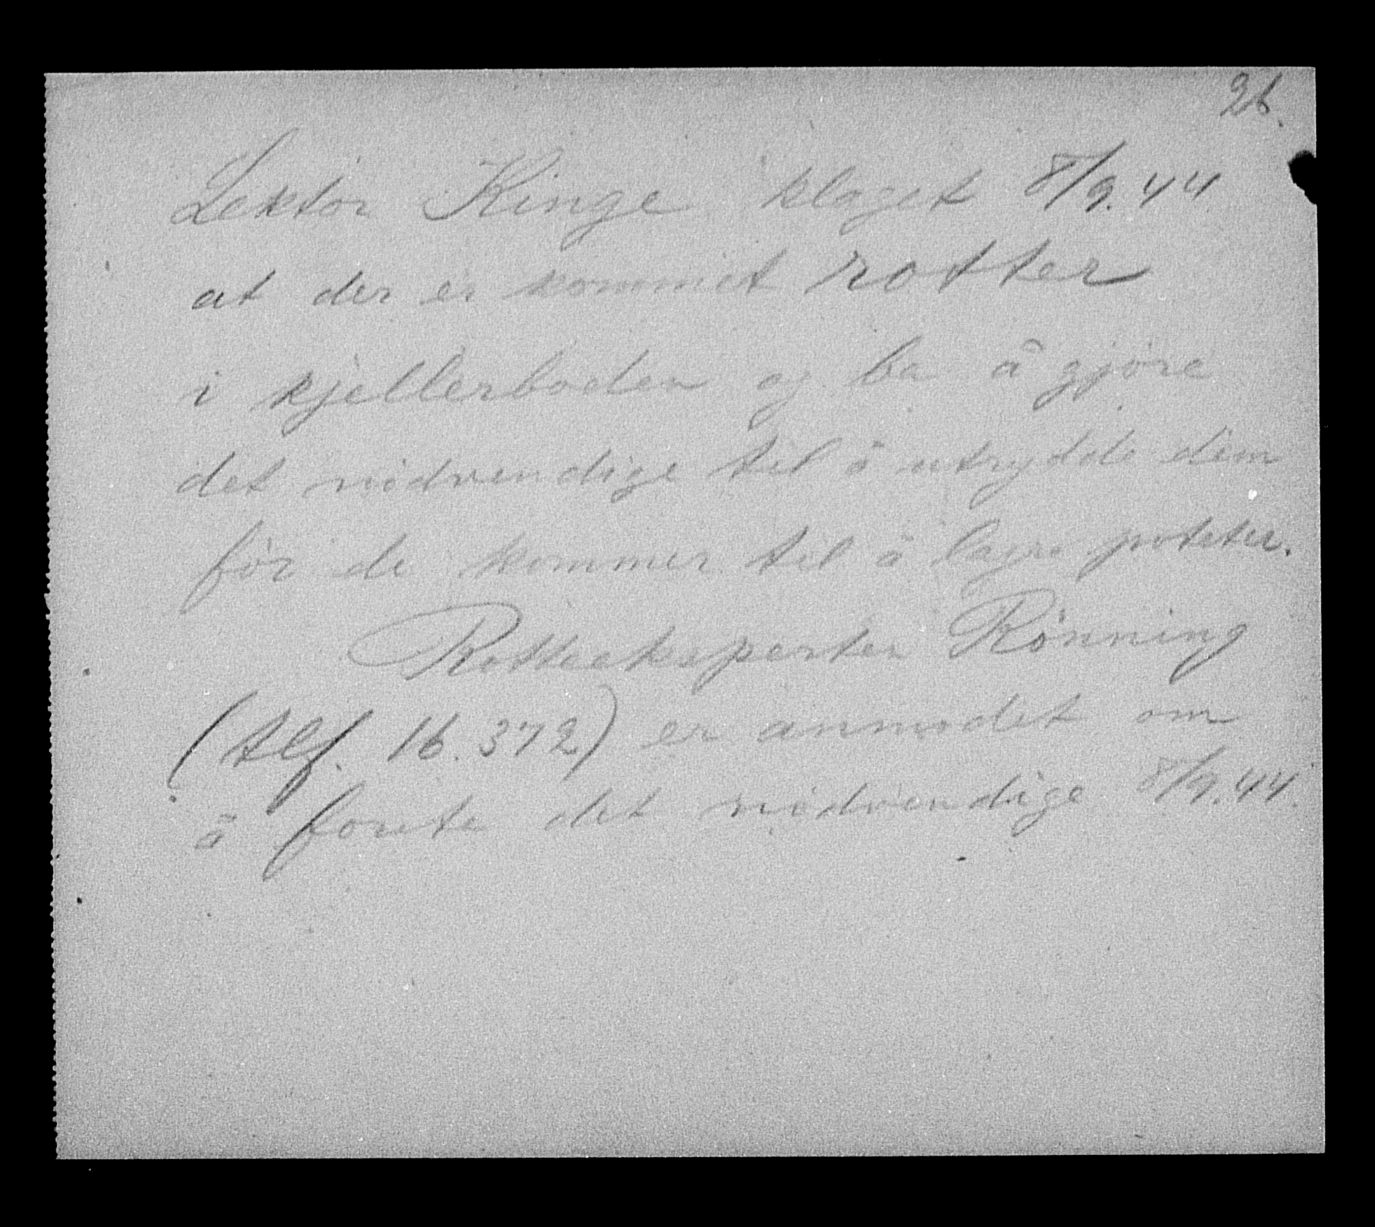 26.
Lektor Kinge klaget 8/9.44
at der er kommet rotter
i kjellerboden og ba å gjøre
det nødvendige til å utrydde dem
før de kommer til å lagre poteter.
Rotteeksperten Rönning
(tlf. 16.372) er anmodet om
å foreta det nødvendige 8/9.44.